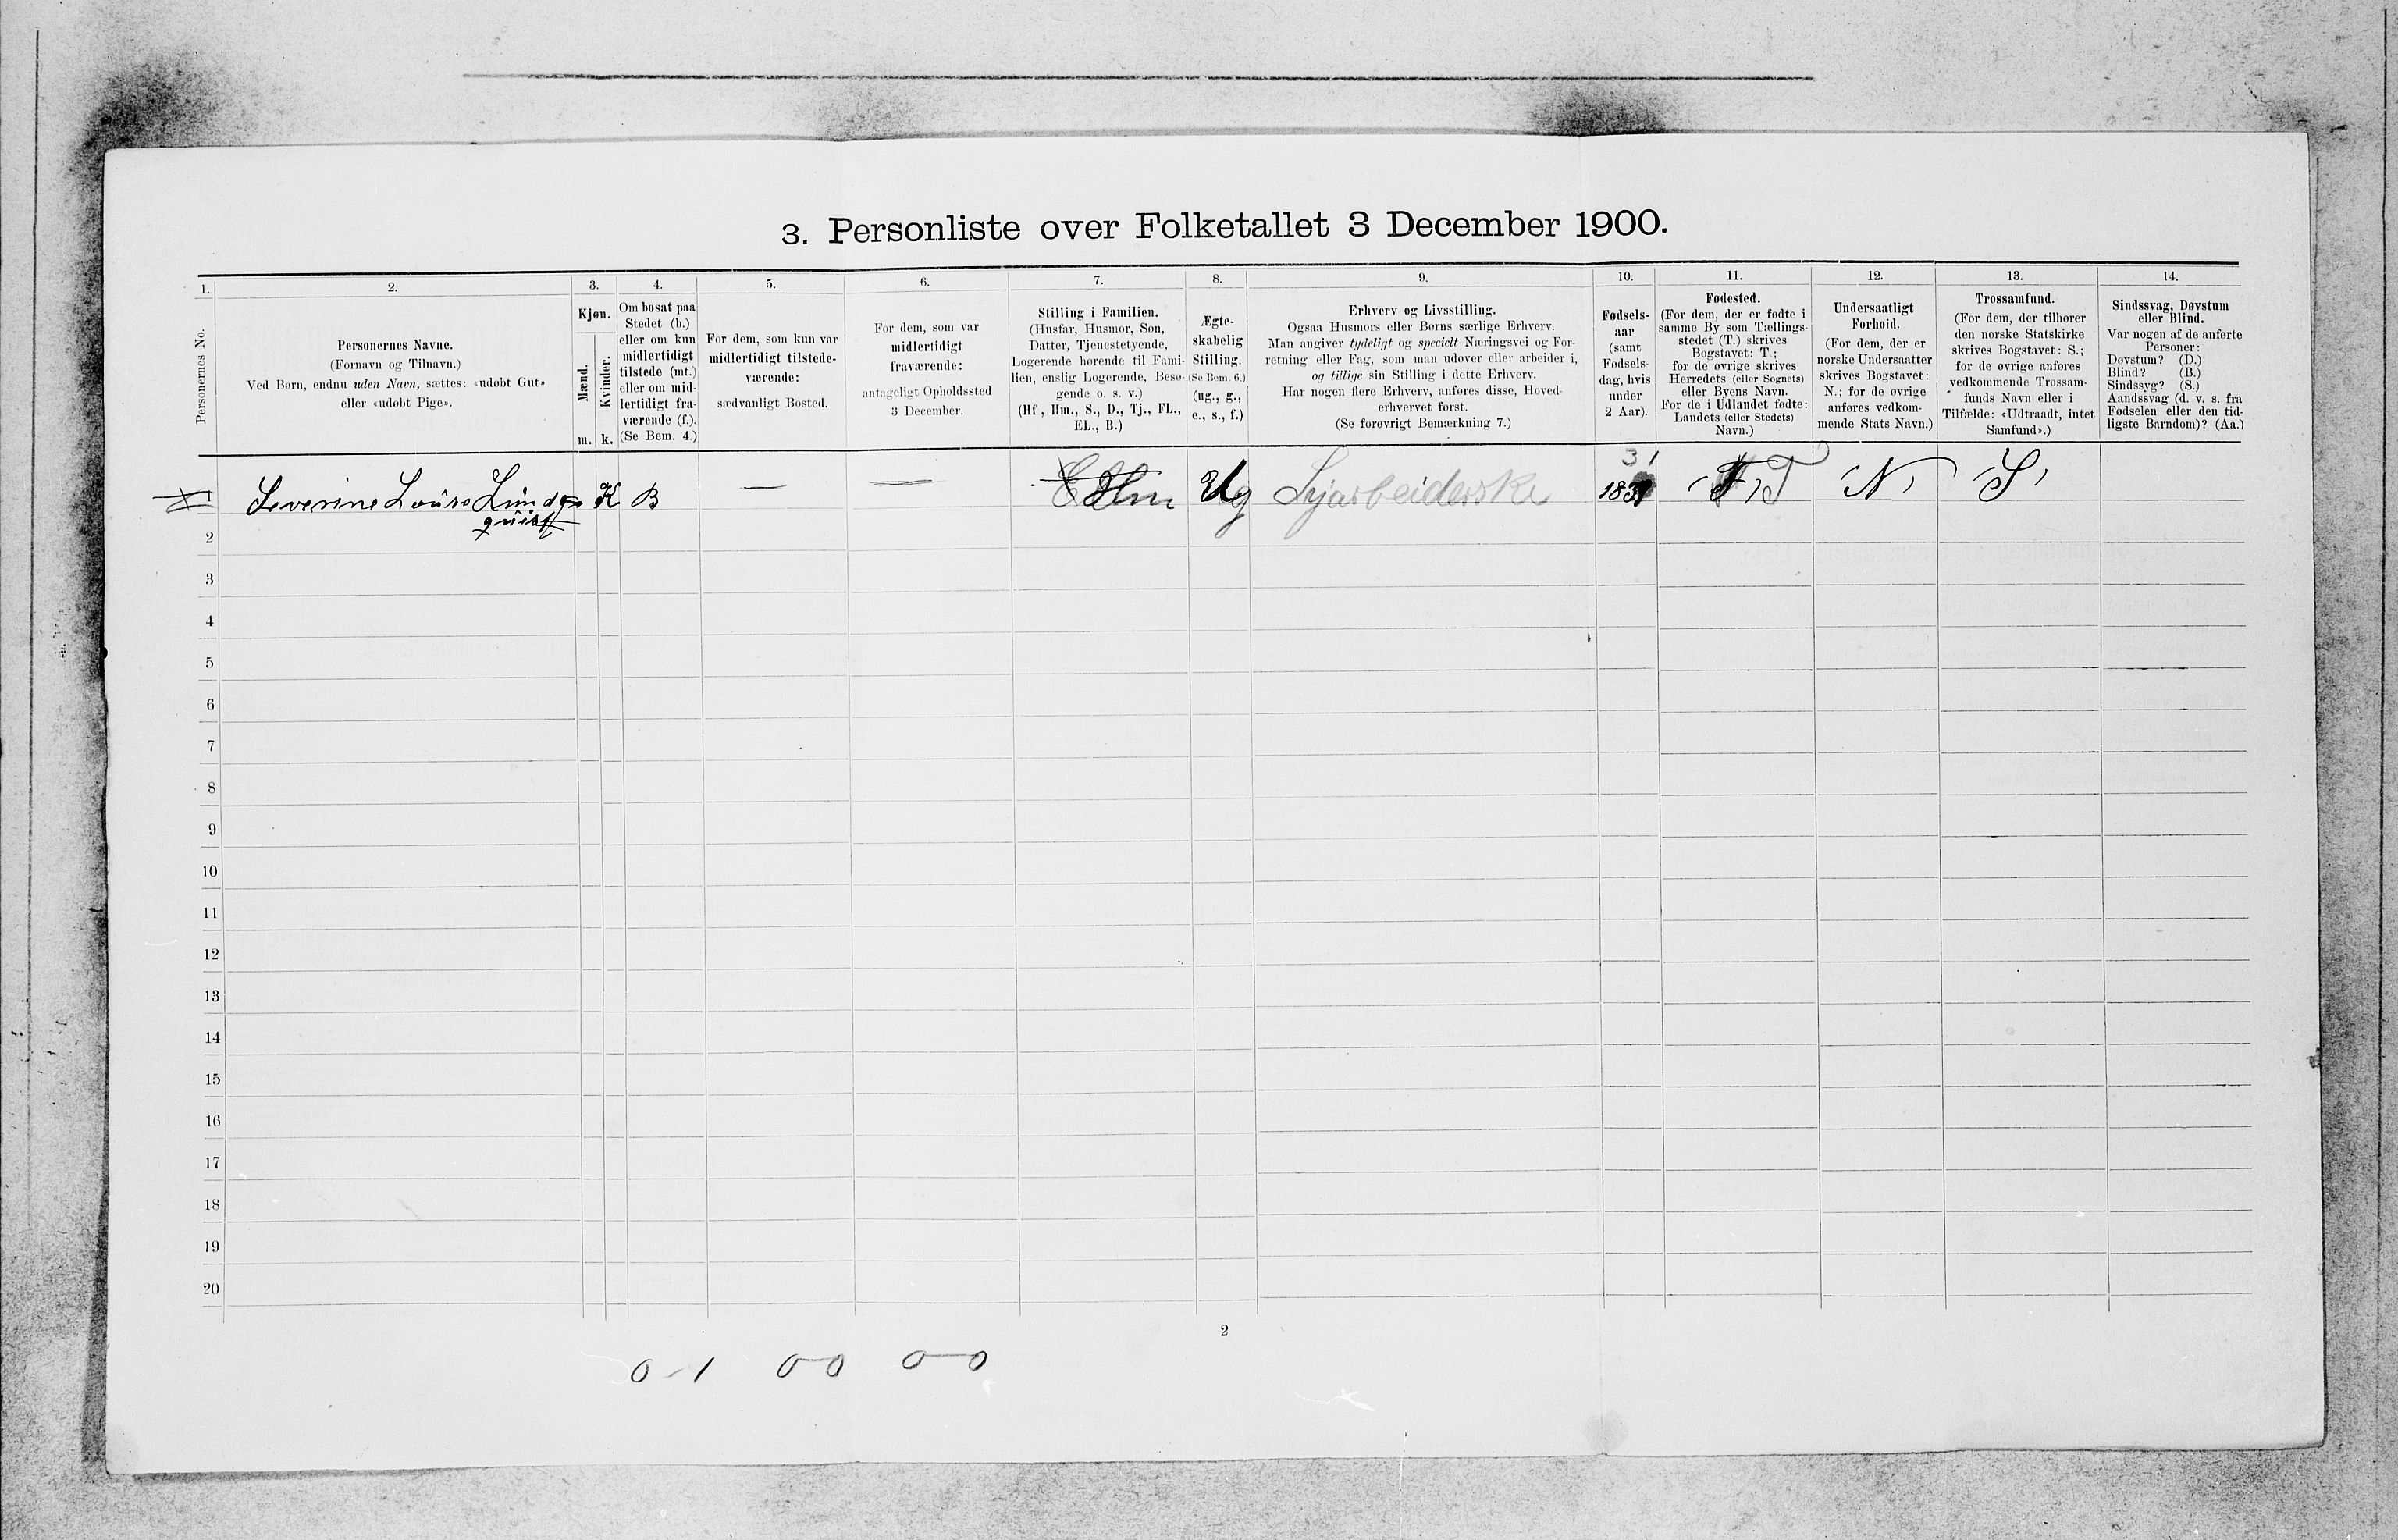 3. Personliste over Folketallet 3 December 1900.
1.
Personernes No.
2.
Personernes Navne.
(Fornavn og Tilnavn.)
Ved Børn, endnu uden Navn, sættes: «udøbt Gut»
eller «udøbt Pige».
3.
Kjøn.
Mænd.
Kvinder.
m. k.
4.
Om bosat paa
Stedet (b.)
eller om kun
midlertidigt
tilstede (mt.)
eller om mid-
lertidigt fra-
værende (f.).
(Se Bem. 4.)
5.
For dem, som kun var
midlertidigt tilstede-
værende:
sædvanligt Bosted.
6.
For dem, som var
midlertidigt
fraværende:
antageligt Opholdssted
3 December.
7.
Stilling i Familien.
(Husfar, Husmor, Søn,
Datter, Tjenestetyende,
Logerende hørende til Fami-
lien, enslig Logerende, Besø-
gende o. s. v.)
(Hf., Hm., S., D., Tj., FL.,
EL., B.)
8.
Ægte-
skabelig
Stilling.
(Se Bem. 6.)
(ug., g.,
e., s., f.)
9.
Erhverv og Livsstilling.
Ogsaa Husmors eller Børns særlige Erhverv.
Man angiver tydeligt og specielt Næringsvei og For-
retning eller Fag, som man udøver eller arbeider i,
og tillige sin Stilling i dette Erhverv.
Har nogen flere Erhverv, anføres disse, Hoved-
erhvervet først.
(Se forøvrigt Bemærkning 7.)
10.
Fødsels-
aar
(samt
Fødsels-
dag, hvis
under
2 Aar).
11.
Fødested.
(For dem, der er fødte i
samme By som Tællings-
stedet (T.) skrives
Bogstavet: T.;
for de øvrige skrives
Herredets (eller Sognets)
eller Byens Navn.
For de i Udlandet fødte:
Landets (eller Stedets)
Navn.)
12.
Undersaatligt
Forhold.
(For dem, der er
norske Undersaatter
skrives Bogstavet:
N.; for de øvrige
anføres vedkom-
mende Stats Navn.)
13.
Trossamfund.
(For dem, der tilhører
den norske Statskirke
skrives Bogstavet: S.;
for de øvrige anføres
vedkommende Trossam-
funds Navn eller i
Tilfælde: «Udtraadt, intet
Samfund».)
14.
Sindssvag, Døvstum
eller Blind.
Var nogen af de anførte
Personer:
Døvstum? (D.)
Blind? (B.)
Sindssyg? (S.)
Aandssvag (d. v. s. fra
Fødselen eller den tid-
ligste Barndom)? (Aa.)
Severine Louise Lindq= K B — — Hm Ug Syarbeiderske 1831 T N S
quist
31
2
3
4
5
6
7
8
9
10
11
12
13
14
15
16
17
18
19
20
2
0-1 0-0 0-0